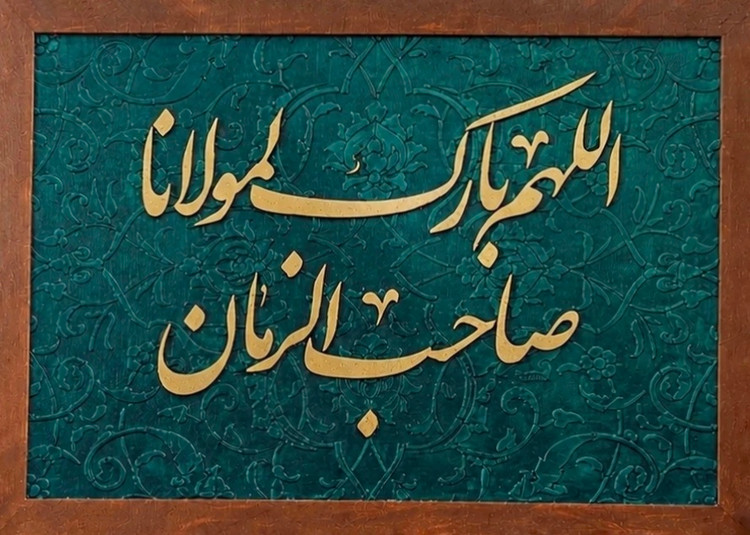 اللهم بارك لمولانا
صاحب الزمان